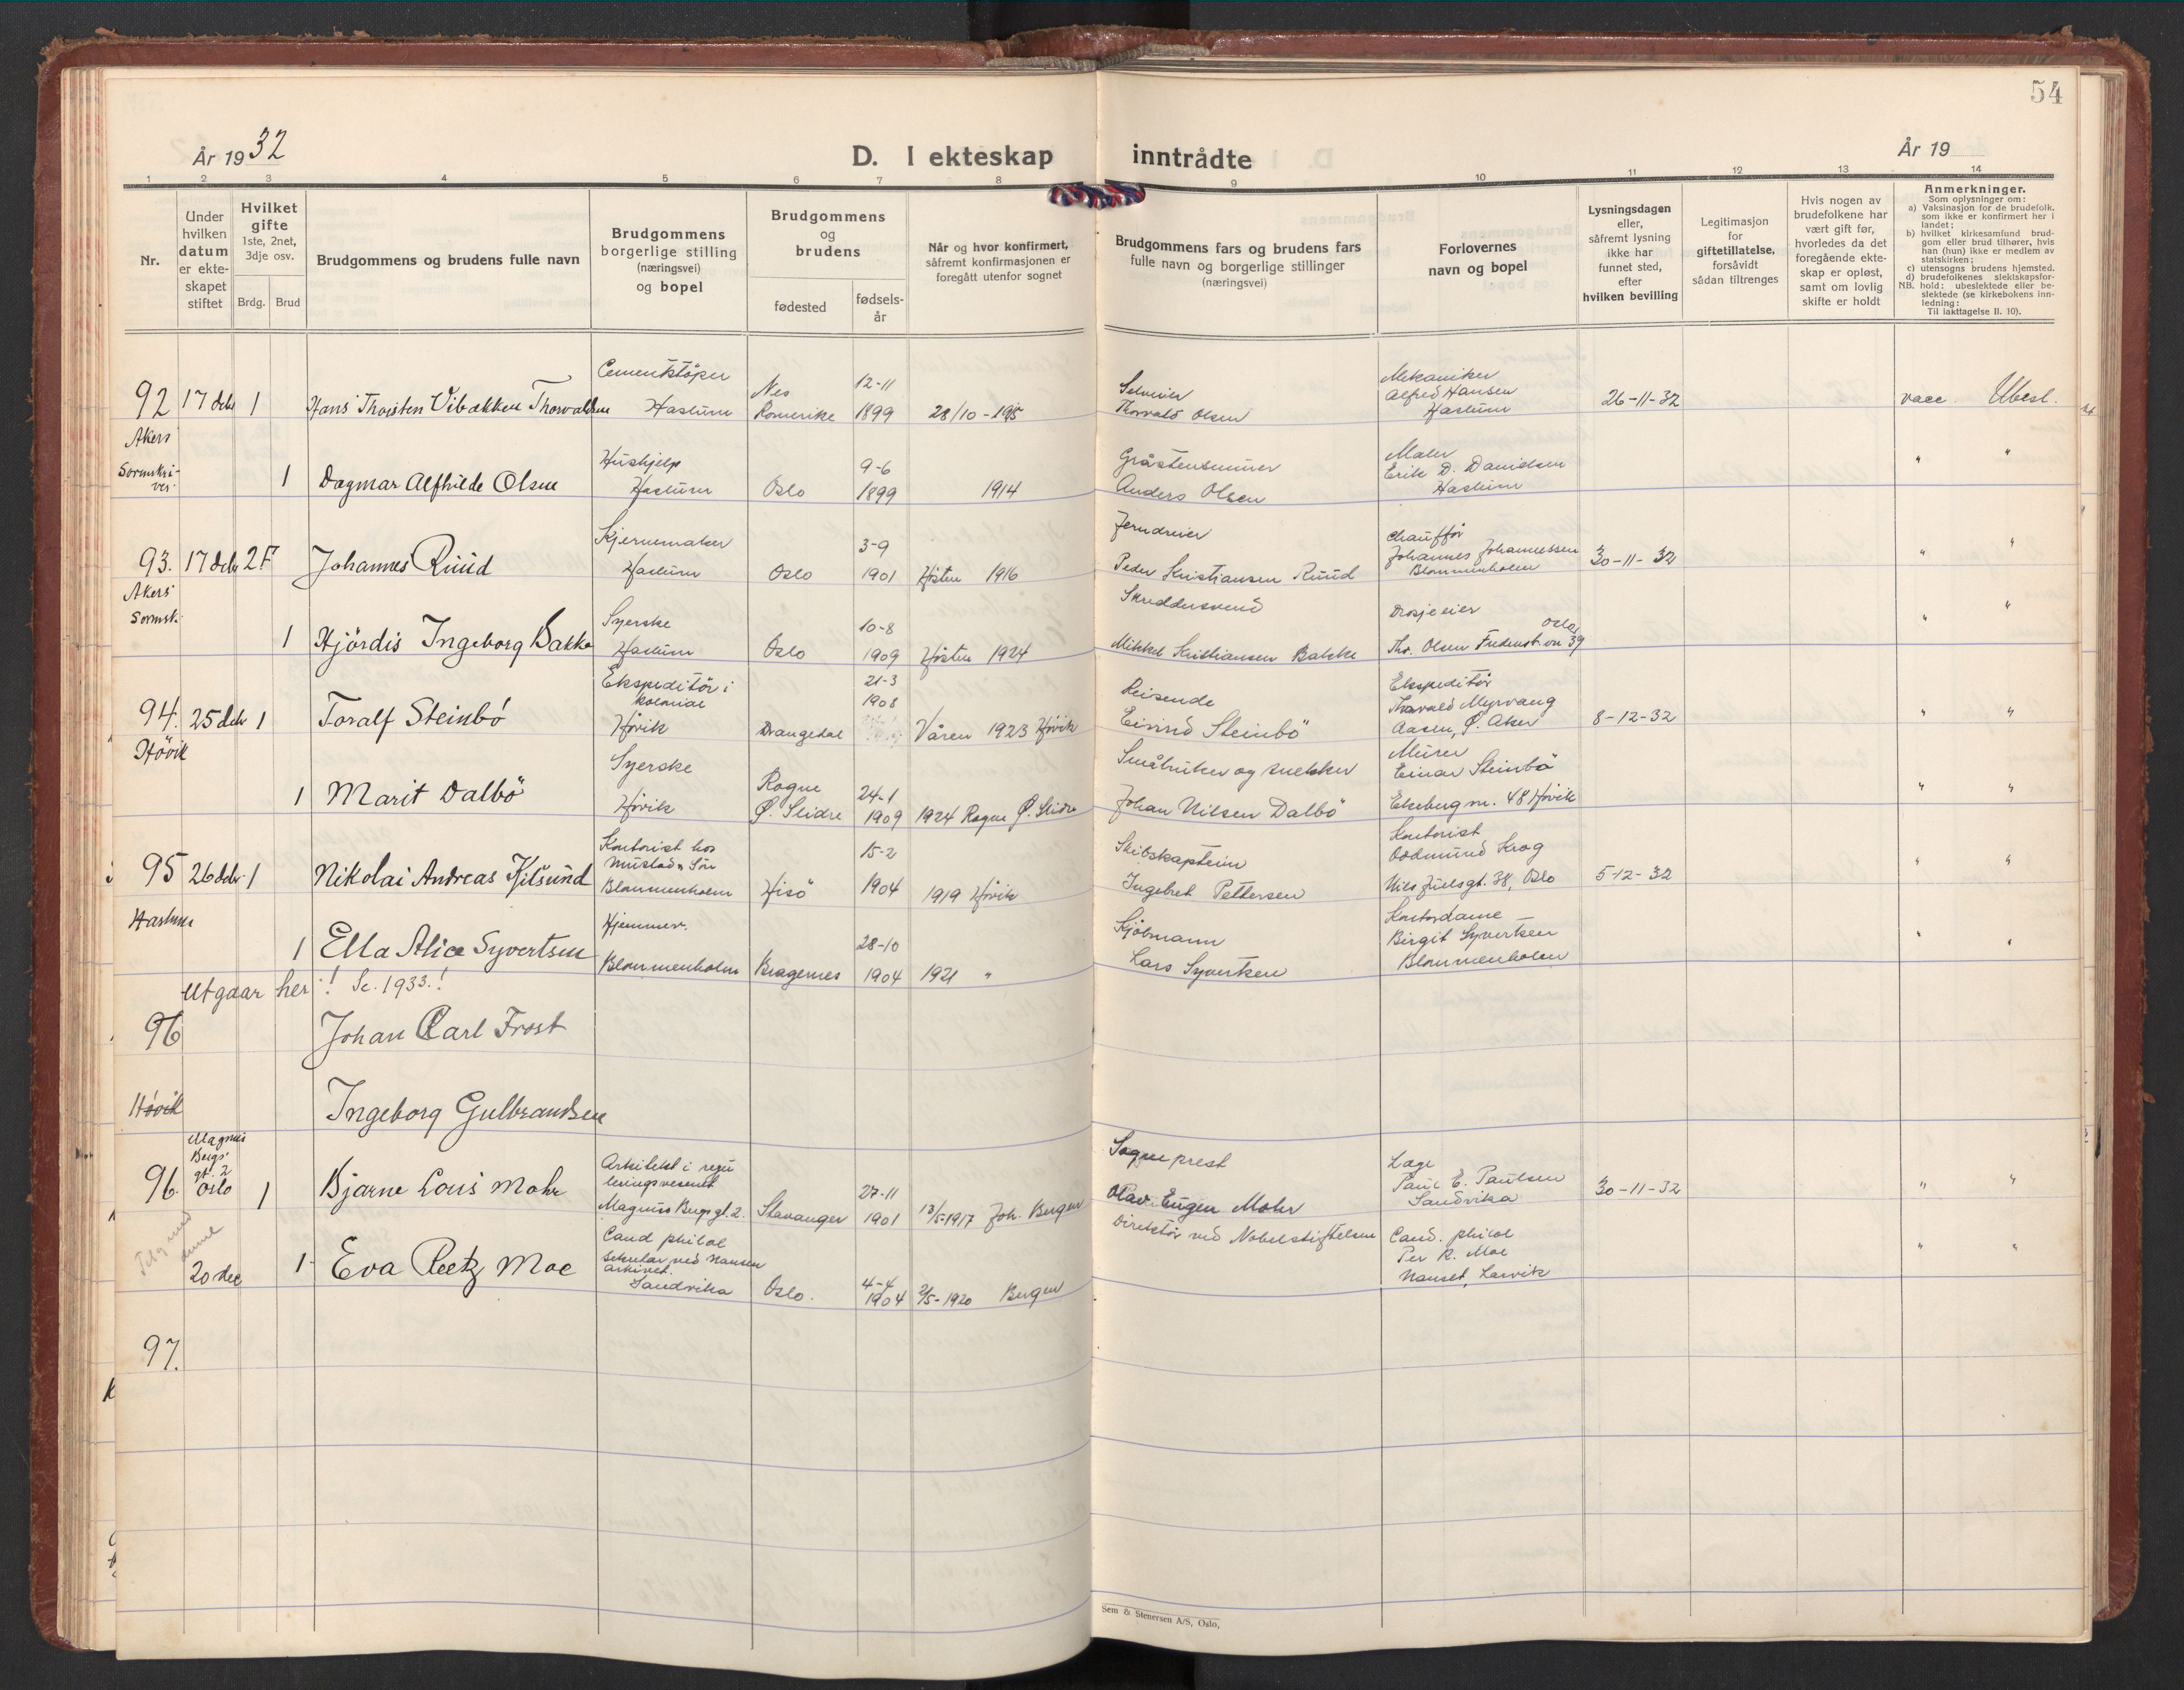 54
År 1932
D. I ekteskap inntrådte
År 19
1 2 3 4 5 6 7 8 9 10 11 12 13 14
Nr.
Under hvilken datum er ekteskapet stiftet
Hvilket gifte 1ste, 2net, 3dje osv.
Brdg. Brud
Brudgommens og brudens fulle navn
Brudgommens borgerlige stilling (næringsvei) og bopel
Brudgommens og brudens
fødested
fødsels-år
Når og hvor konfirmert, såfremt konfirmasjonen er foregått utenfor sognet
Brudgommens fars og brudens fars fulle navn og borgerlige stillinger (næringsvei)
Forlovernes navn og bopel
Lysningsdagen eller, såfremt lysning ikke har funnet sted, efter hvilken bevilling
Legitimasjon for giftetillatelse, forsåvidt sådan tiltrenges
Hvis nogen av brudefolkene har vært gift før, hvorledes da det foregående ekteskap er opløst, samt om lovlig skifte er holdt
Anmerkninger.
Som oplysninger om:
a) Vaksinasjon for de brudefolk. som ikke er konfirmert her i landet;
b) hvilket kirkesamfund brudgom eller brud tilhører, hvis han (hun) ikke er medlem av statskirken;
c) utensogns brudens hjemsted.
d) brudefolkenes slektskapsforhold: ubeslektede eller beslektede (se kirkebokens innledning:
NB.
Til iakttagelse II. 10).
92 17 debr 1 Hans Thorsten Vibakken Thorvaldsen
Cementstøper
Haslum
Nes
Romerike
12-11
1899
28/10-1915
Thorvald Olsen
Mekaniker
Alfred Hansen
Haslum
26-11-32
vacc. Ubesl.
Akers
Sorenskriver
1 Dagmar Alfhilde Olsen
Hushjelp
Haslum
Oslo
9-6
1899
1914
Gråstensminer
Anders Olsen
Maler
Erik D. Danielsen
Haslum
" "
93. 17 debr 2F Johannes Ruud
Kjernemaker
Haslum
Oslo
3-9
1901
Høsten 1916
Jerndreier
Peder Kristiansen Ruud
Chauffør
Johannes Johannessen
Blommenholm
30-11-32
" "
Akers
Sorensk.
1 Hjördis Ingeborg Bakke
Syerske
Haslum
Oslo
10-8
1909
Høsten 1924
Skreddersvend
Mikkel Kristiansen Bakke
Drosjeeier
Oslo
Th. Olsen Fredenst. vn 39
" "
94. 25 debr 1 Toralf Steinbö
Ekspeditör i
kolonial
Høvik
Drangedal
21-3
1908
Våren 1923 Høvik
Reisende
Eivind Steinbö
Ekspeditör
Thorvald Myrvang
Aasen, Ø. Aker
8-12-32
" "
Hövik
1 Marit Dalbö
Syerske
Høvik
Rogne
Ø. Slidre
24-1
1909
1924 Rogne Ø. Slidre
Småbruker og snekker
Johan Nilsen Dalbö
Murer
Einar Steinbö
Ekebergvn. 48 Høvik
" "
95 26 debr. 1 Nikolai Andreas Kilsund
Kontorist hos
Mustad & Sön
Blommenholm
Hisö
15-2
1904
1919 Høvik
Skibskaptein
Ingebret Pettersen
Kontorist
Oddmund Krog
Niels Juelsgt. 38, Oslo
5-12-32
" "
Haslum
1 Ella Alice Syvertsen
Hjemmev.
Blommenholm
Bragernes
28-10
1904
1921 "
Kjöbmann
Lars Syvertsen
Kontordame
Birgit Syvertsen
Blommenholm
" "
Utgaar her! Se. 1933.!
96 Johan Carl Frost
Høvik
Ingeborg Gulbrandsen
96. Magnus
Bergs
gt. 2
Oslo
1 Bjarne Louis Mohr
Arkitekt i regu
leringsvesenet
Magnus Bergs gt. 2.
Stavanger
27-11
1901
13/5-1917 Joh. Bergen
Sogneprest
Olav Eugen Mohr
Læge
Paul E. Paulsen
Sandvika
30-11-32
" "
20 dec
1 Eva Reetz Moe
Cand philol
Sekretær ved Nansen
arkivet.
Sandvika
Oslo.
4-4
1904
2/5-1920 Bergen
Direktör ved Nobelstiftelsen
Cand. philol
Per R. Moe
Nanset, Larvik
" "
97.
Sem & Stenersen A/S, Oslo.